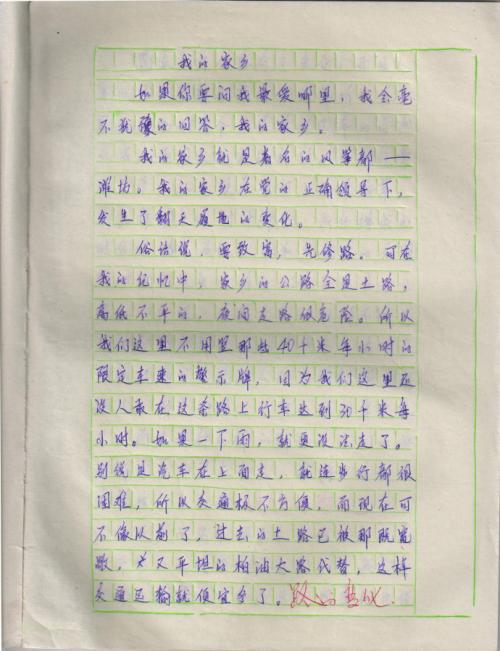 我的家乡
如果你要问我最爱哪里，我会毫
不犹豫的回答，我的家乡。
我的家乡就是著名的风筝都——
潍坊。我的家乡在党的正确领导下，
发生了翻天履地的变化。
俗话说，要致富，先修路。可在
我的记忆中，家乡的公路全是土路，
高低不平的，夜间走路很危险。所以
我们这里不用置那些40千米每小时的
限定车速的警示牌，因为我们这里还
没人敢在这条路上行车达到30千米每
小时。如果一下雨，就更没法走了。
别说是汽车在上面走，就连步行都很
困难，所以交通极不方便，而现在可
不像以前了，过去的土路已被那既宽
敞，又平坦的柏油大路代替，这样
交通运输就便宜多了。路的变化